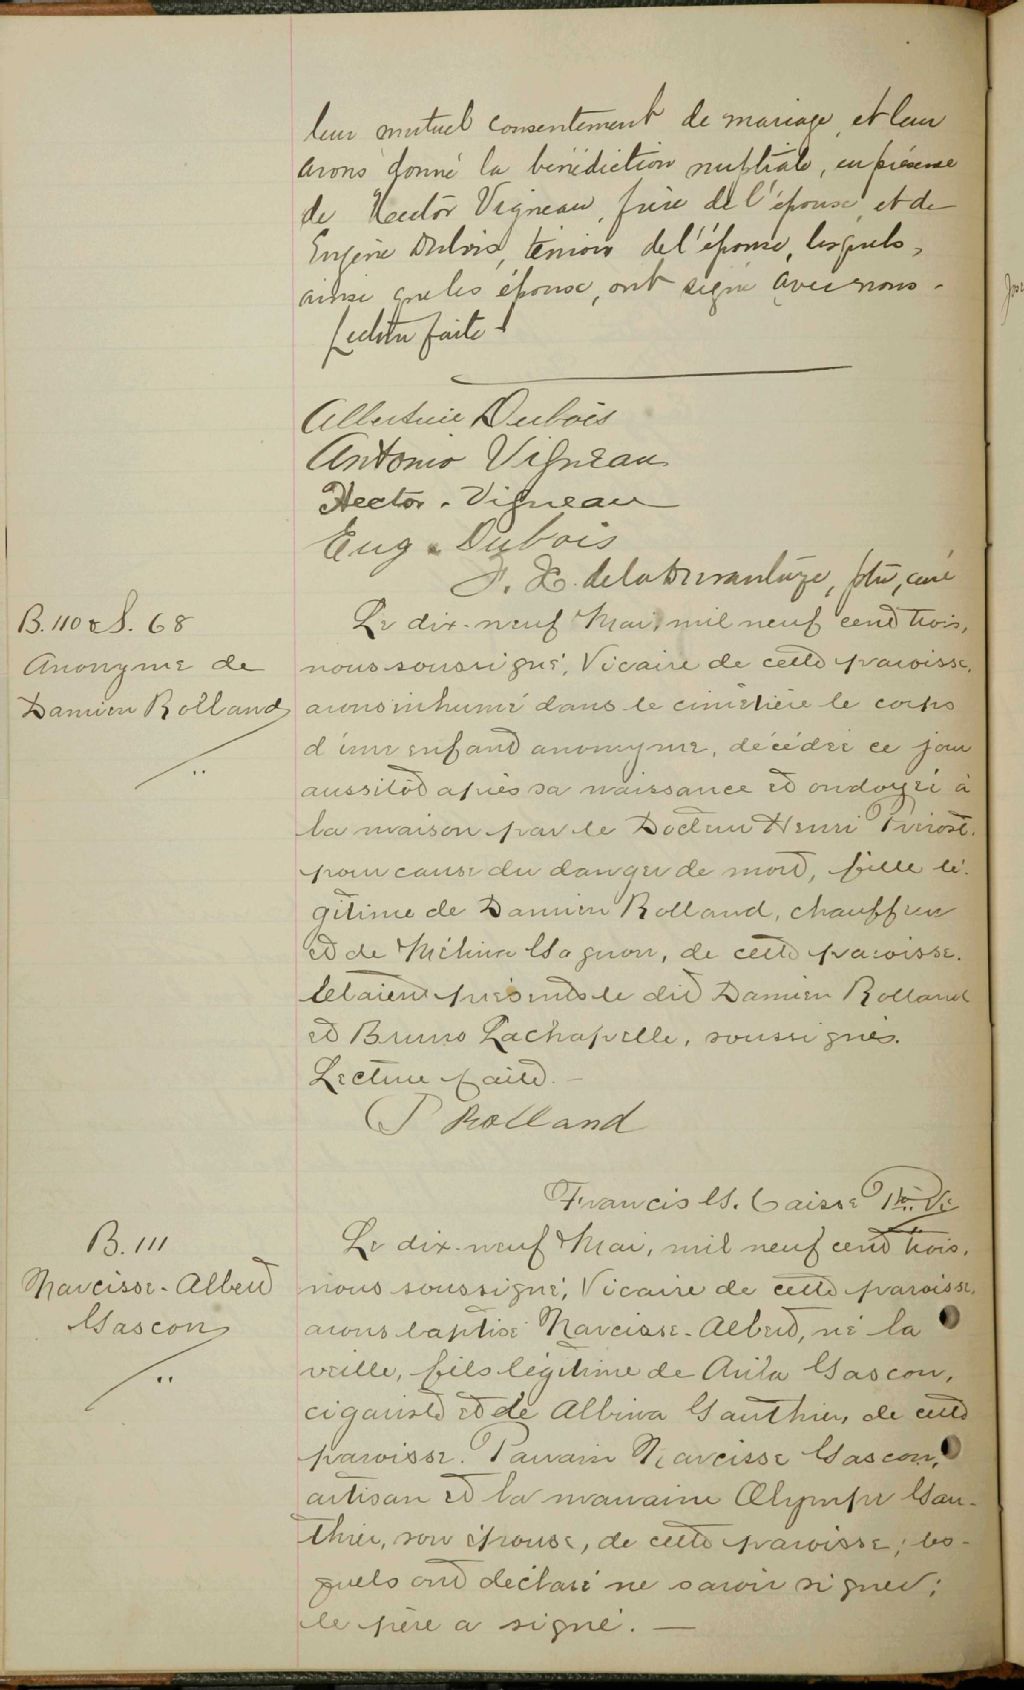 leur mutuel consentement de mariage, et leur
avons donné la bénédiction nuptiale, en présence
de Hector Vigneau, frère de l'époux, et de
Eugène Dubois, témoin de l'épouse, lesquels,
ainsi que les époux, ont signé avec nous.
Lecture faite.
Albertine Dubois
Antonio Vigneau
Hector. Vigneau
Eug. Dubois
F. X. de la Durantaye, ptre, curé
B. 110 & S. 68
Anonyme de
Damien Rolland
Le dix-neuf Mai, mil neuf cent trois,
nous soussigné, Vicaire de cette paroisse,
avons inhumé dans le cimetière le corps
d'une enfant anonyme, décédée ce jour
aussitôt après sa naissance et ondoyée à
la maison par le Docteur Henri Prévost,
pour cause du danger de mort, fille lé-
gitime de Damien Rolland, chauffeur
et de Mélina Gagnon, de cette paroisse.
Etaient présents le dit Damien Rolland
et Bruno Lachapelle, soussignés.
Lecture faite. —
Rolland
Francis G. Caisse Ptre Vic
B. 111
Narcisse-Albert
Gascon
Le dix-neuf Mai, mil neuf cent trois,
nous soussigné, Vicaire de cette paroisse,
avons baptisé Narcisse-Albert, né la
veille, fils légitime de Avila Gascon,
cigariste et de Albina Gauthier, de cette
paroisse. Parrain Narcisse Gascon,
artisan et la marraine Olympe Gau-
thier, son épouse, de cette paroisse; les-
quels ont déclaré ne savoir signer;
le père a signé. —